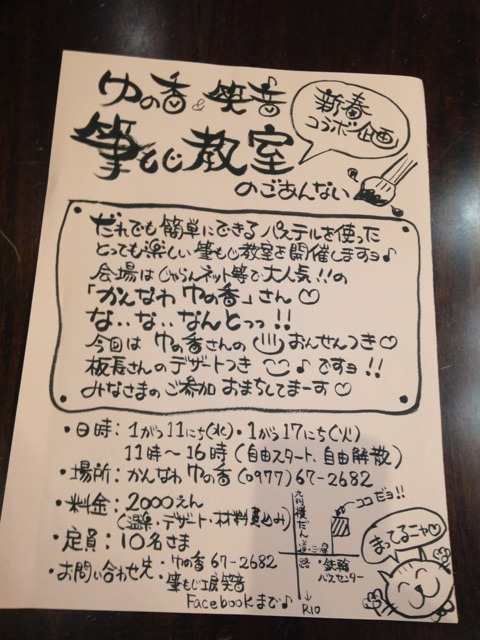 ゆの香&笑音
新春
コラボ企画
筆もじ教室
のごあんない
だれでも簡単にできるパステルを使った
とっても楽しい筆もじ教室を開催しますョ♪
会場はじゃらんネット等で大人気!!の
「かんなわ ゆの香」さん♡
な、な、なんとっっ!!
今回は ゆの香さんの♨おんせんつき♡
板長さんのデザートつき ♪ですョ!!
みなさまのご参加 おまちしてまーす♡
・日時:1がつ11にち(水)・1がつ17にち(火)
11時〜16時(自由スタート、自由解散)
・場所:かんなわ ゆの香(0977)67-2682
・料金:2000えん
(温泉・デザート・材料費込み)
・定員:10名さま
・お問い合わせ先・ゆの香 67-2682
・筆もじ工房笑音
Facebookまで♪
ココだョ!!
九州横だん道路
・鉄輪
バスセンター
↓
R10
まってるニャ♡